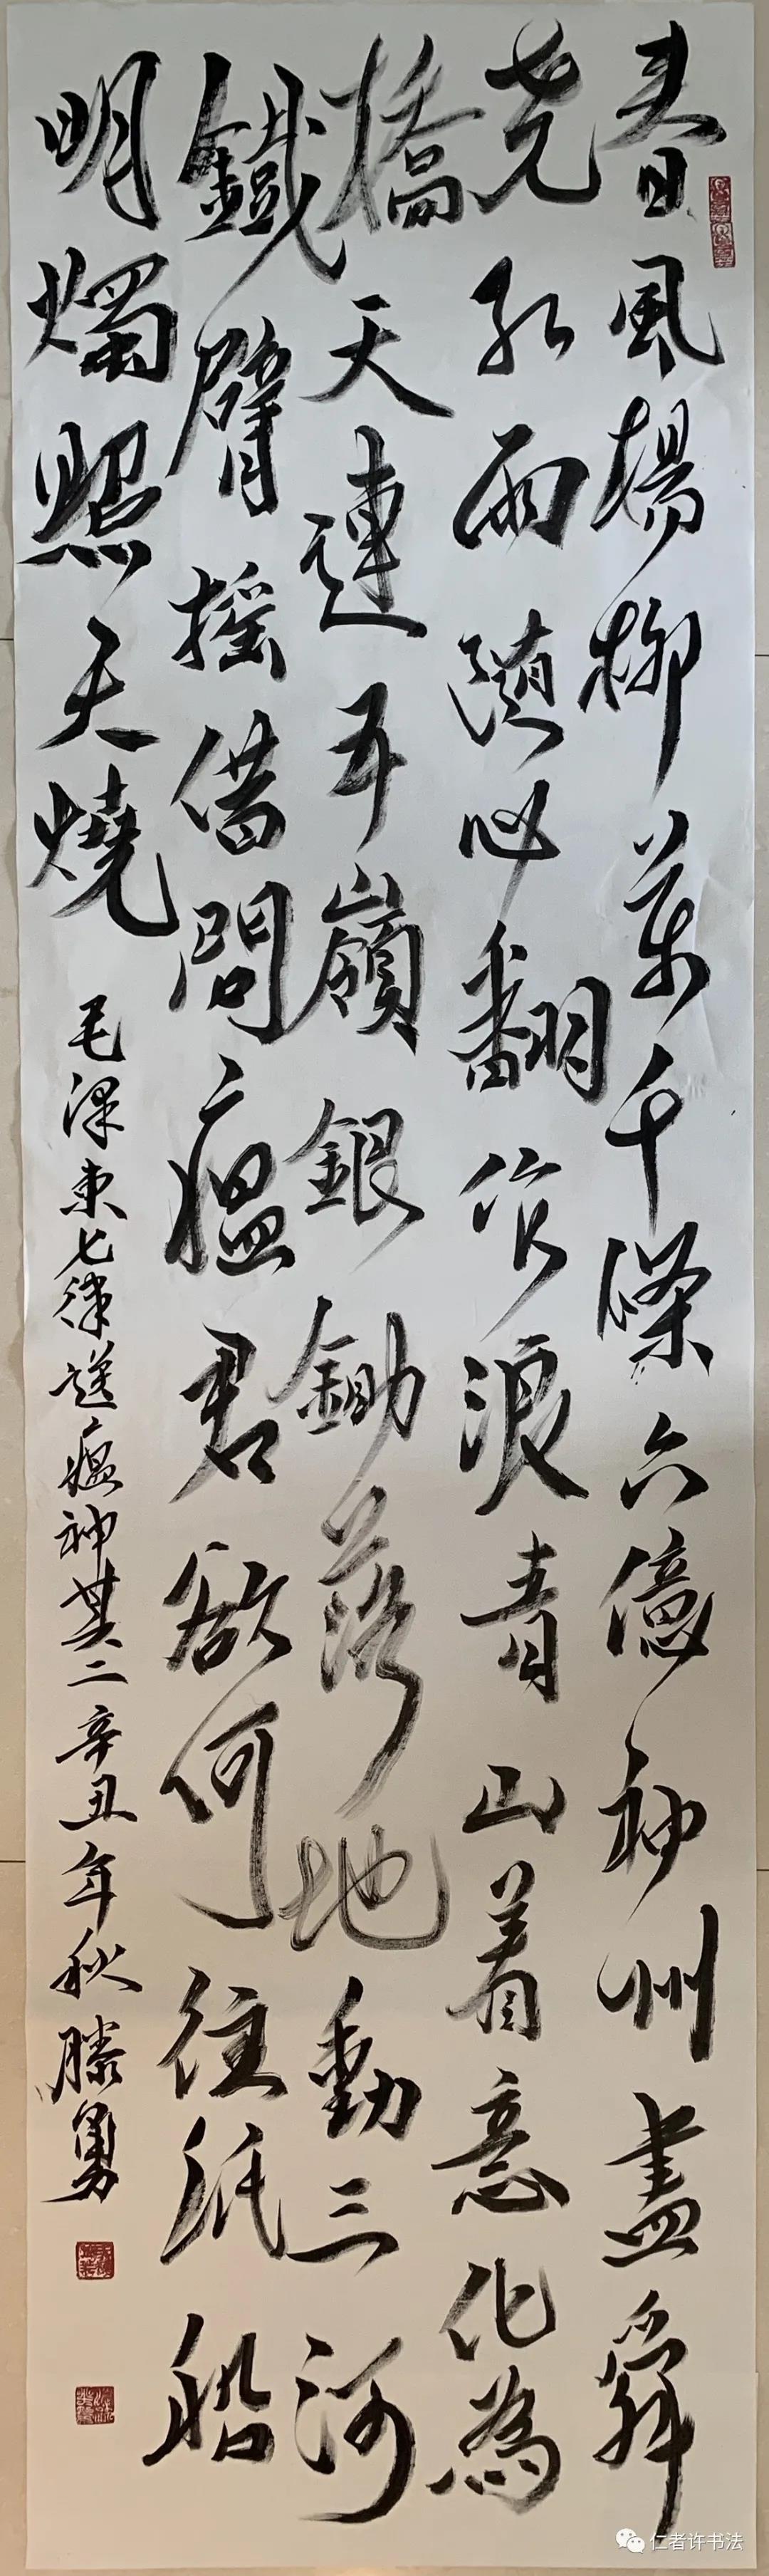 春風楊柳萬千條六億神州盡舜
尧紅雨随心翻作浪青山着意化為
橋天連五嶺銀鋤落地動三河
鐵臂摇借問瘟君欲何往纸船
明燭照天燒
毛泽东七律送瘟神其二辛丑年秋滕勇
仁者许书法